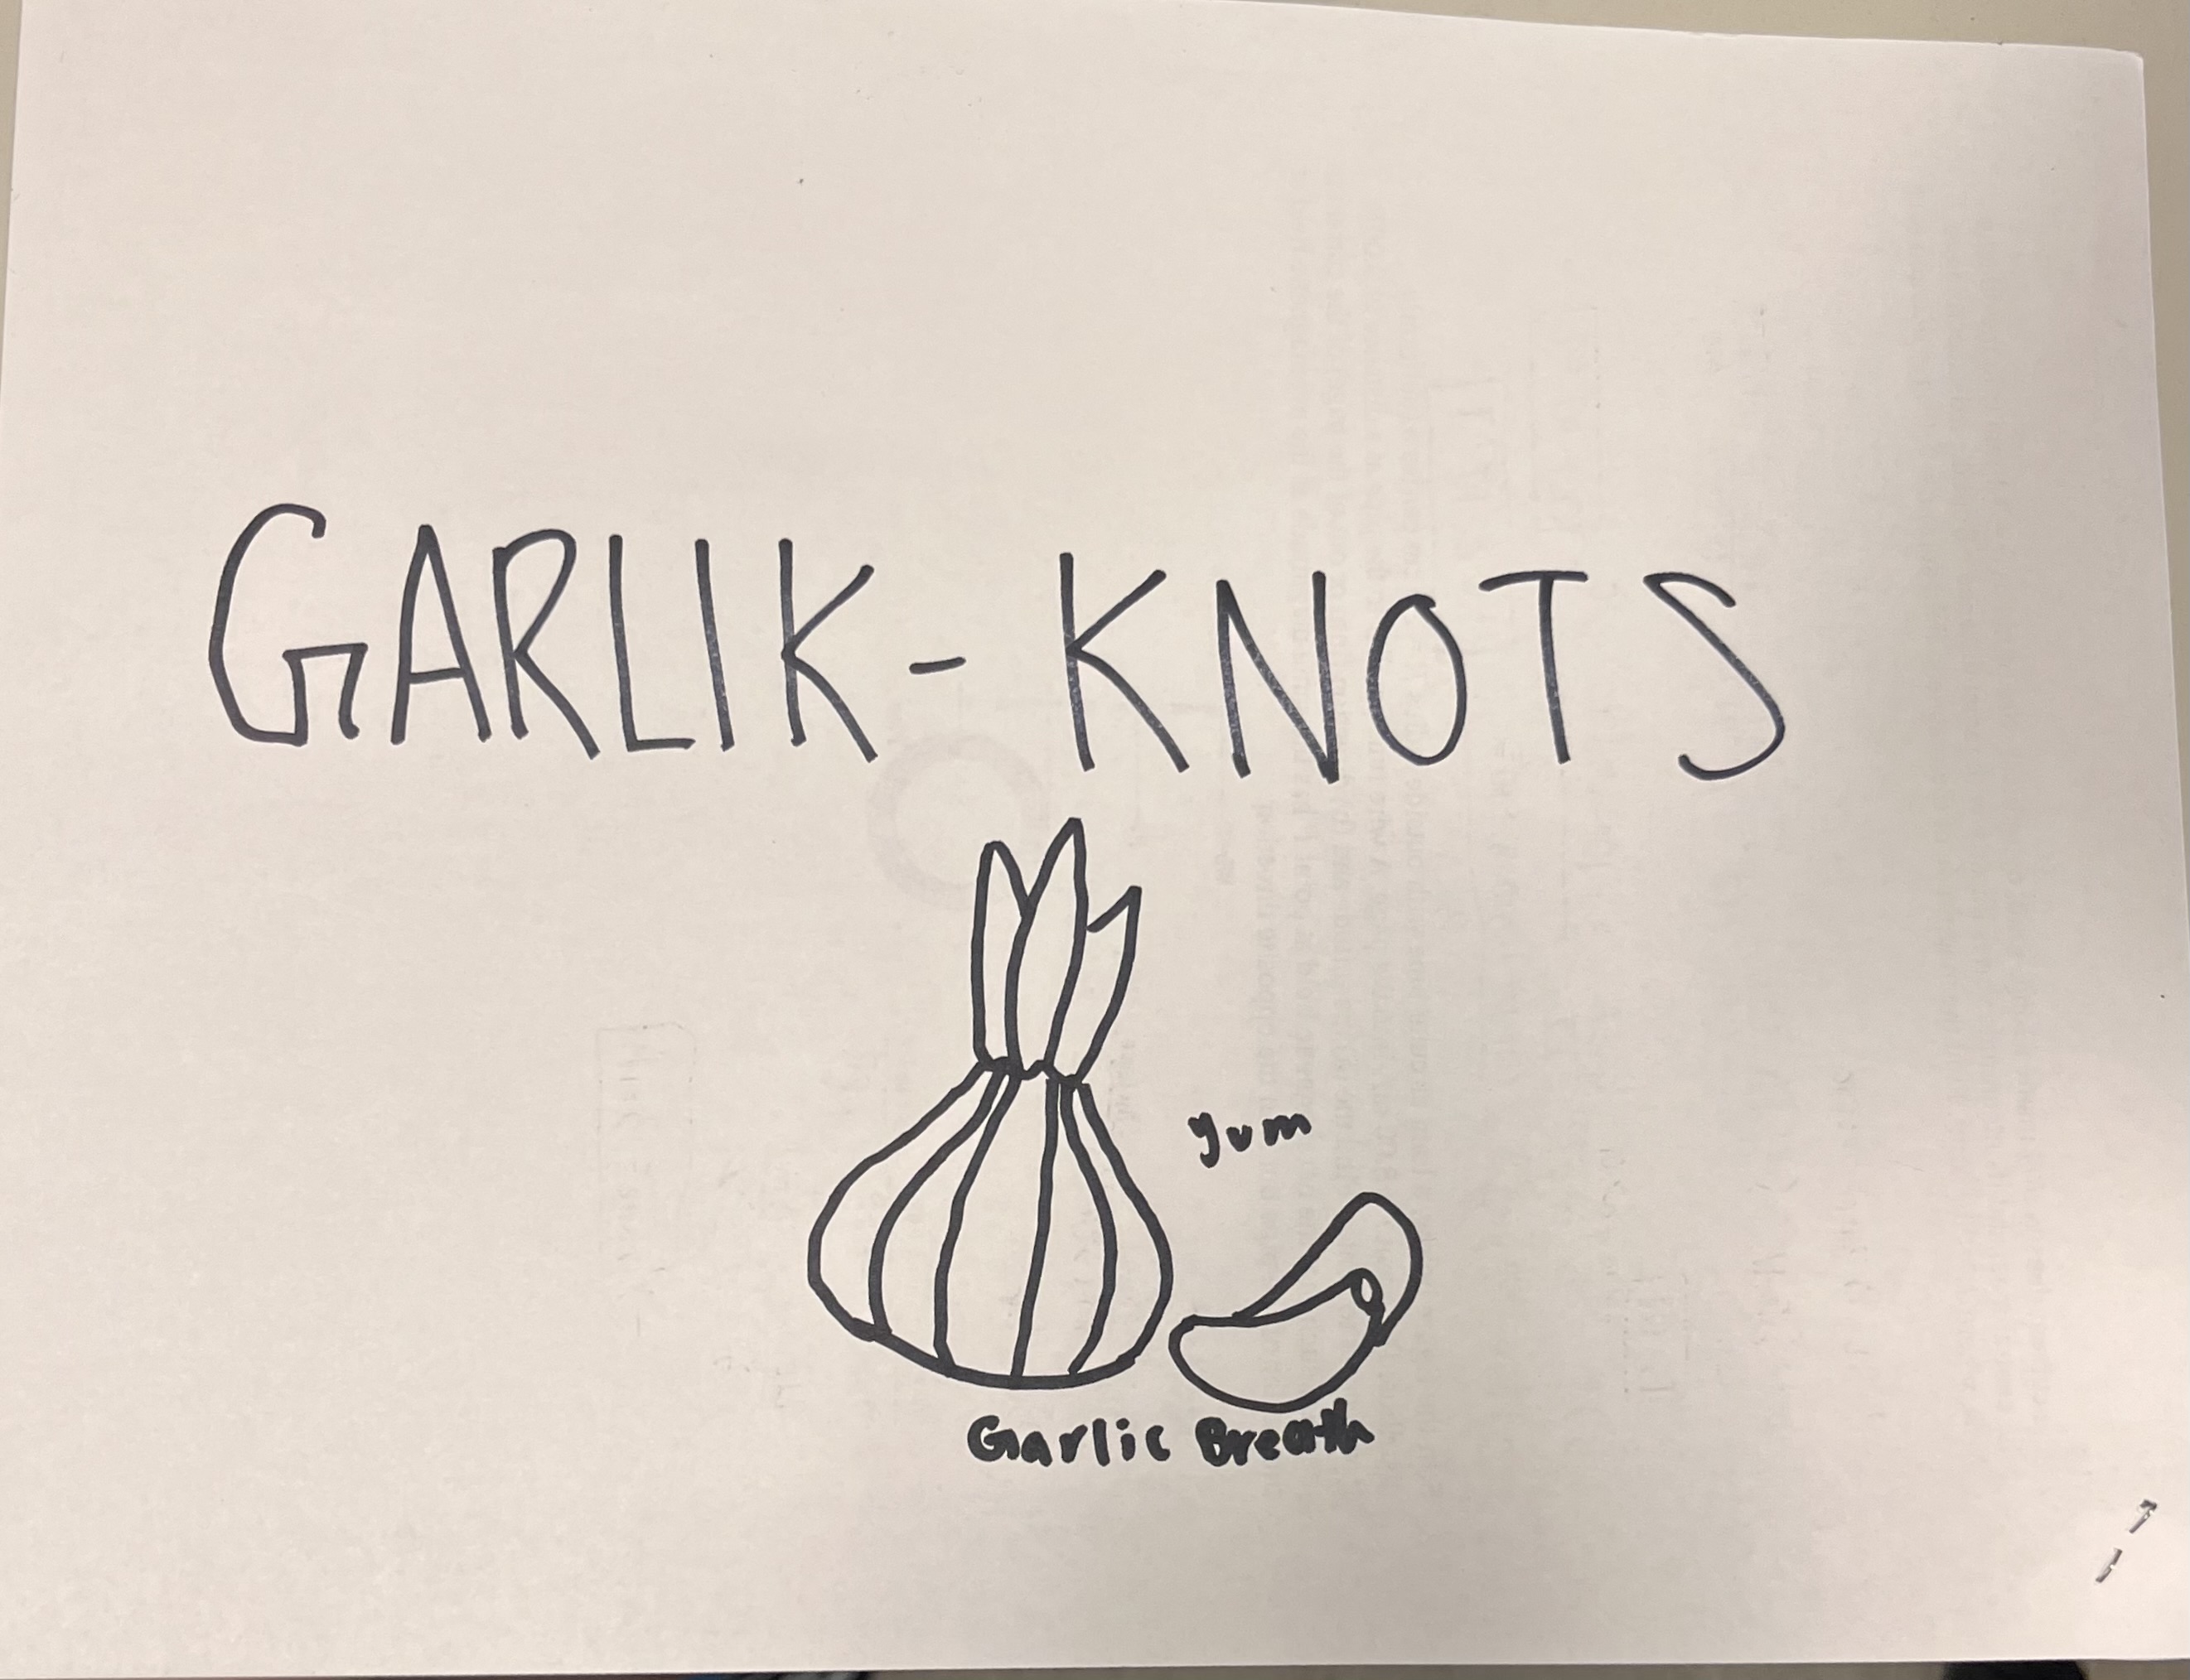 GARLIK - KNOTS
yum
Garlic Breath